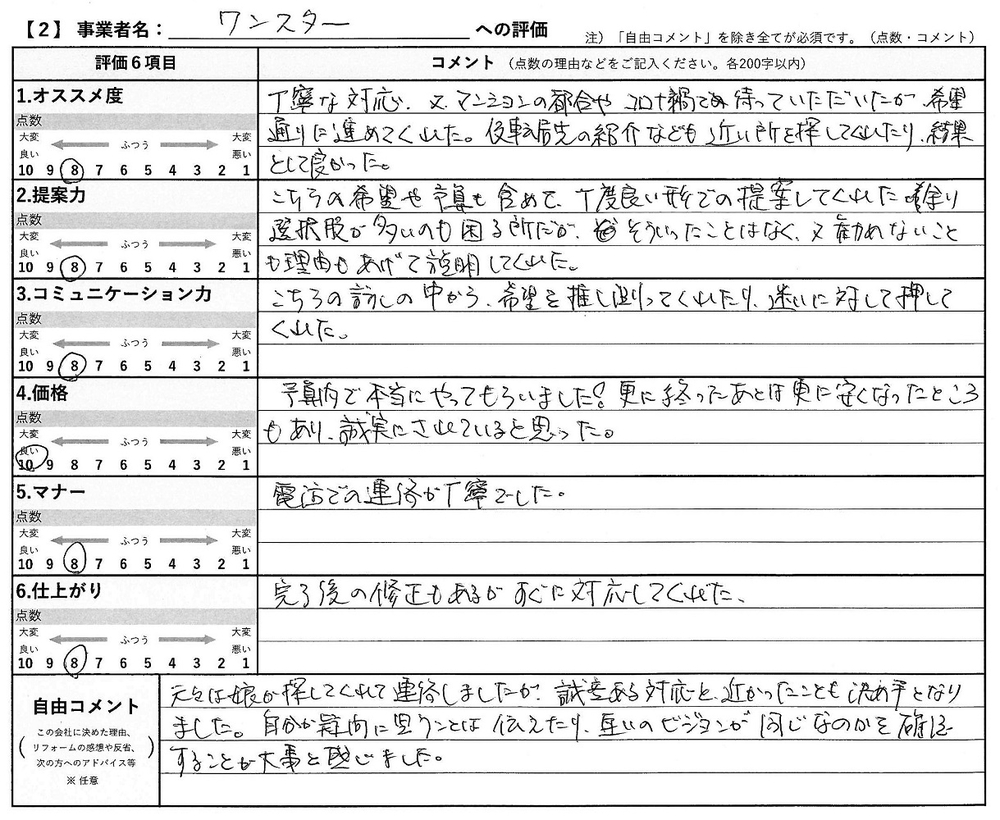 【2】 事業者名： ワンスター への評価
注）「自由コメント」を除き全てが必須です。（点数・コメント）
評価6項目
コメント （点数の理由などをご記入ください。各200字以内）
1.オススメ度
点数
大変良い ふつう 大変悪い
10 9 8 7 6 5 4 3 2 1
丁寧な対応、又、マンションの都合や コロナ禍で 待っていただいたが、希望
通りに進めてくれた。仮転居先の紹介なども 近い所を探してくれたり、結果
として良かった。
2.提案力
点数
大変良い ふつう 大変悪い
10 9 8 7 6 5 4 3 2 1
こちらの希望や予算も含めて、丁度良い形での提案してくれた 余り
選択股が多いのも困る所だが、そういったことはなく、又 勧めれないこと
も理由もあげて説明してくれた。
3.コミュニケーション力
点数
大変良い ふつう 大変悪い
10 9 8 7 6 5 4 3 2 1
こちらの話しの中から、希望を推し測ってくれたり、迷いに対して押して
くれた。
4.価格
点数
大変良い ふつう 大変悪い
10 9 8 7 6 5 4 3 2 1
予算内で本当にやってもらいました！更に終ったあとは更に安くなったところ
もあり、誠実にされていると思った。
5.マナー
点数
大変良い ふつう 大変悪い
10 9 8 7 6 5 4 3 2 1
電話での連絡が丁寧でした。
6.仕上がり
点数
大変良い ふつう 大変悪い
10 9 8 7 6 5 4 3 2 1
完了後の修正もあるが すぐに対応してくれた、
自由コメント
この会社に決めた理由、
リフォームの感想や反省、
次の方へのアドバイス等
※ 任意
元々は娘が探してくれて連絡しましたが、誠意ある対応と、近かったことも決め手となり
ました。自分が疑問に思うことは 伝えたり、互いのビジョンが同じなのかを確認
することが大事と感じました。